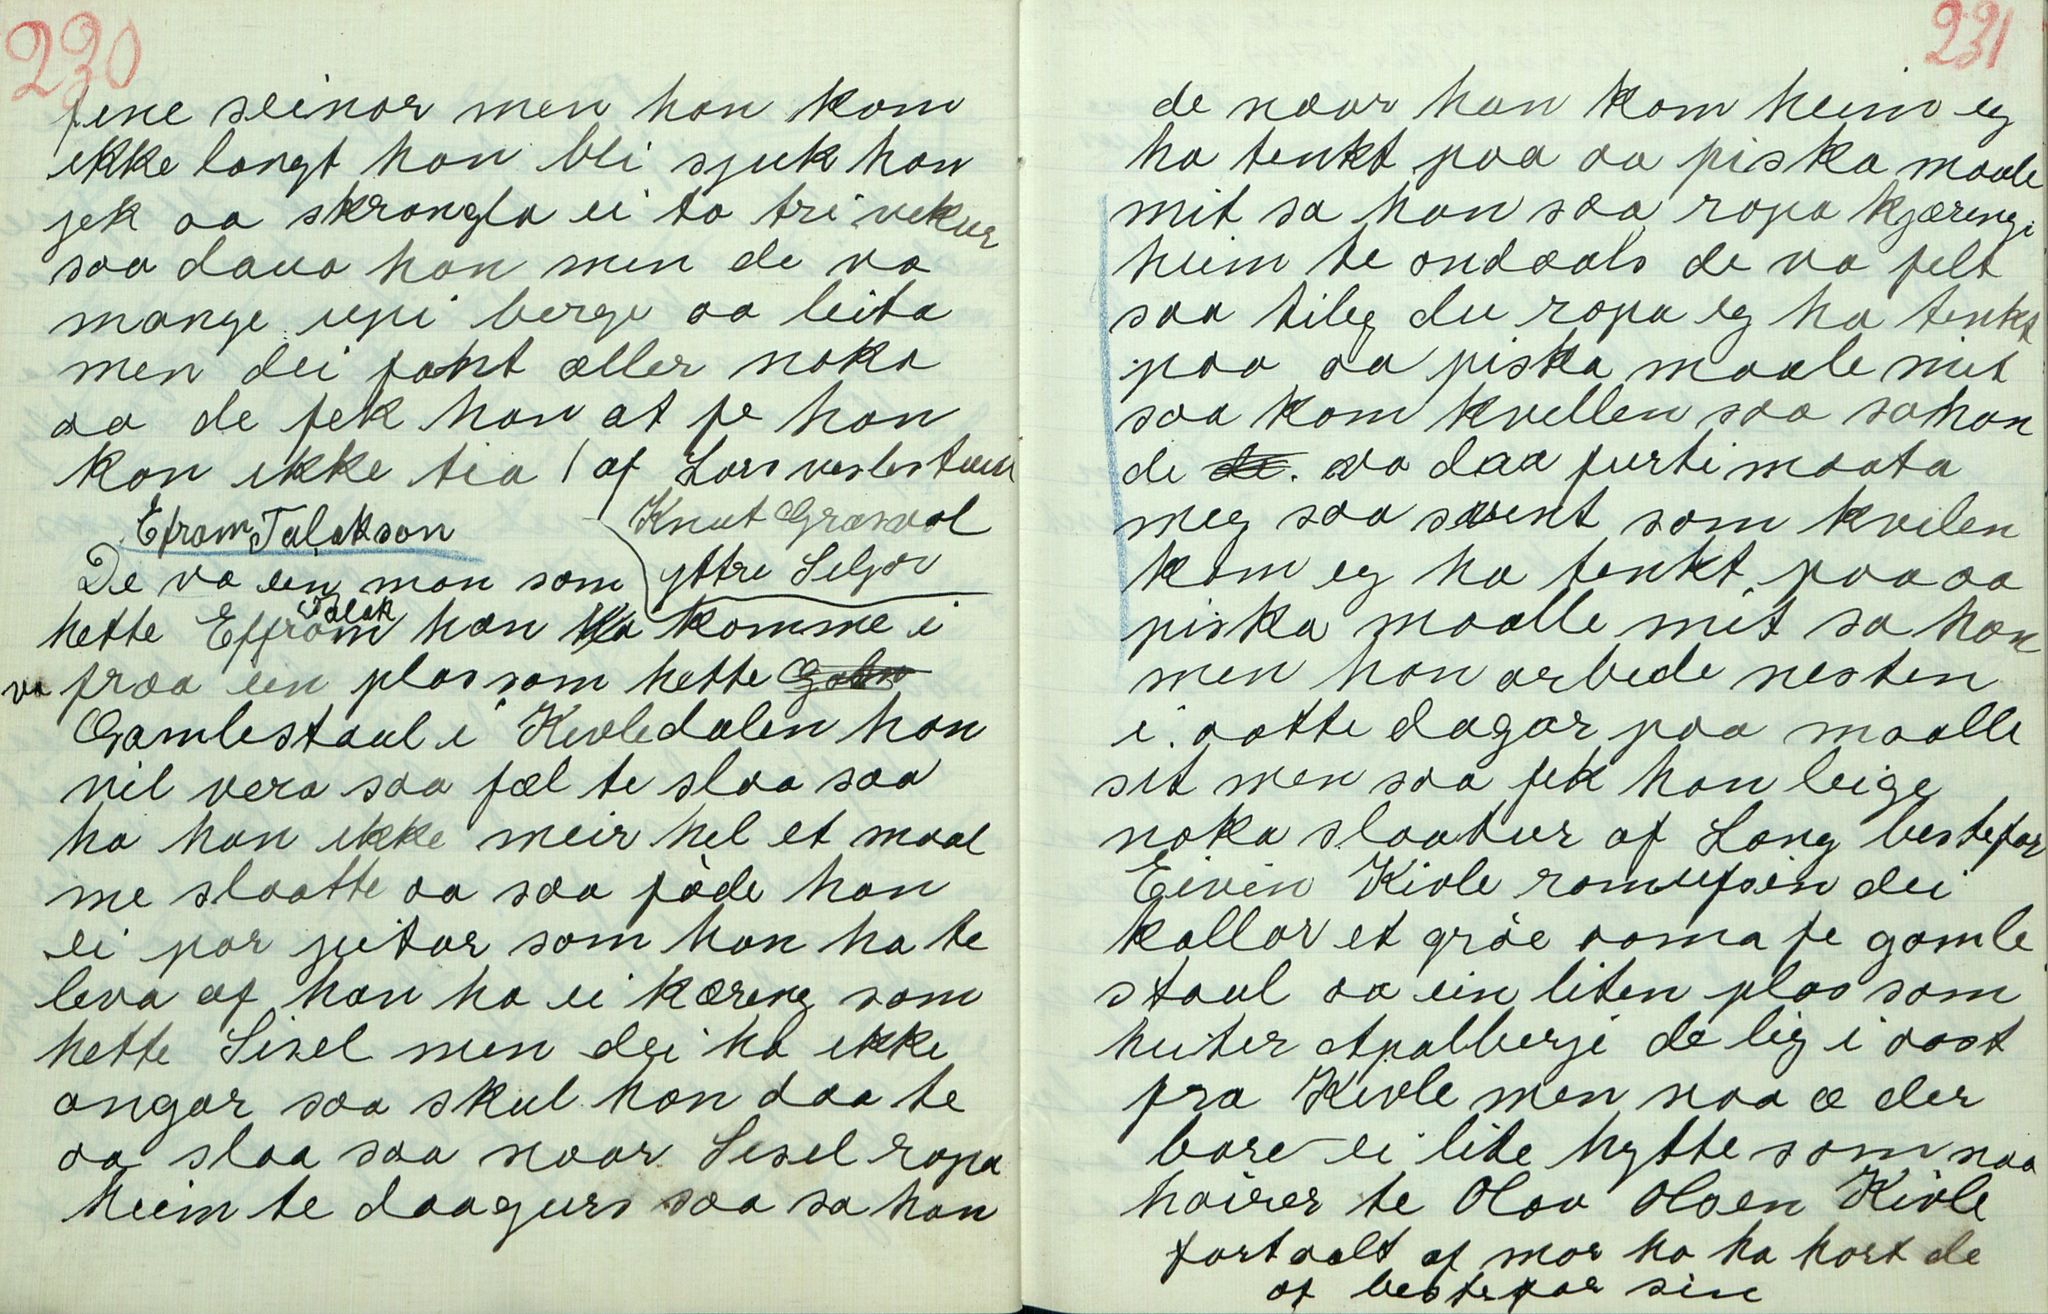 230
fene seinar men han kom
ikke langt han blei sjuk han
jek aa skrangla ei to tri vekur
saa daua han men de va
mange upi berge aa leita
men dei fant aller noka
aa de fek han at fe han
kan ikke tia / af Lars veslestaul
Knut Græsvol
yttre Seljor
Efram Talakson
De va ein man som
hette Effram Talak han ha komme i
va fraa ein plas som hette
Gamlestaul i Kivledalen han
vil vera saa fæl te slaa saa
ha han ikke meir hel et maal
me slaatte aa saa föde han
ei par jeitar som han ha te
leva af han ha ei kæreng som
hette Sisel men dei ha ikke
ongar saa skul han daa te
aa slaa saa naar Sisel ropa
heim te daagurs saa sa han
231
de naar han kom heim eg
ha tenkt paa aa piska maale
mit sa han saa ropa kjæringi
heim te ondaals de va felt
saa tileg du ropa eg ha tenkt
paa aa piska maale mit
saa kom kvellen saa sa han
de va daa furti maata
meg saa seent som kvelen
kom eg ha tenkt paa aa
piska maalle mit sa han
men han arbede nesten
i aatte dagar paa maalle
sit men saa fek han leige
noka slaatur af Lang bestefar
Eivin Kivle romufsein dei
kallar et gröe aama fe gamle
staul aa ein liten plas som
heiter Apalbergi de lig i aast
fra Kivle men naa æ der
bare ei lite hytte som naa
höirer te Olav Olsen Kivle
fortaalt af mor ho ha hört de
af bestefar sin